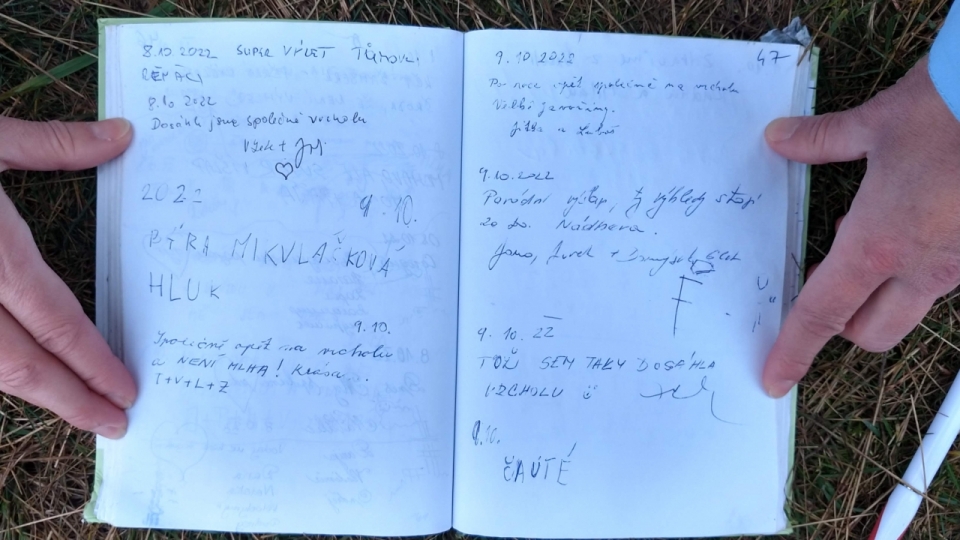 8.10 2022 SUPER VÝLET
8.10 2022
Dosáhli jsme společně vrcholu
Vítek +
2022 9.10.
BÝRA MIKULAŠKOVÁ
HLUK
9.10.
Společně opět na vrcholu
a NENÍ MLHA! Krása.
T+V+L+Z
47
9.10 2022
Po roce opět společně na vrcholu
Velké Javořiny.
Jitka a Luboš
9.10.2022
Parádní výstup, výhledy stojí
za to. Nádhera.
Jana,
F
9. 10. 22
TOŽ SEM TAKY DOSÁHLA
VRCHOLU
9.10.
ČAUTÉ